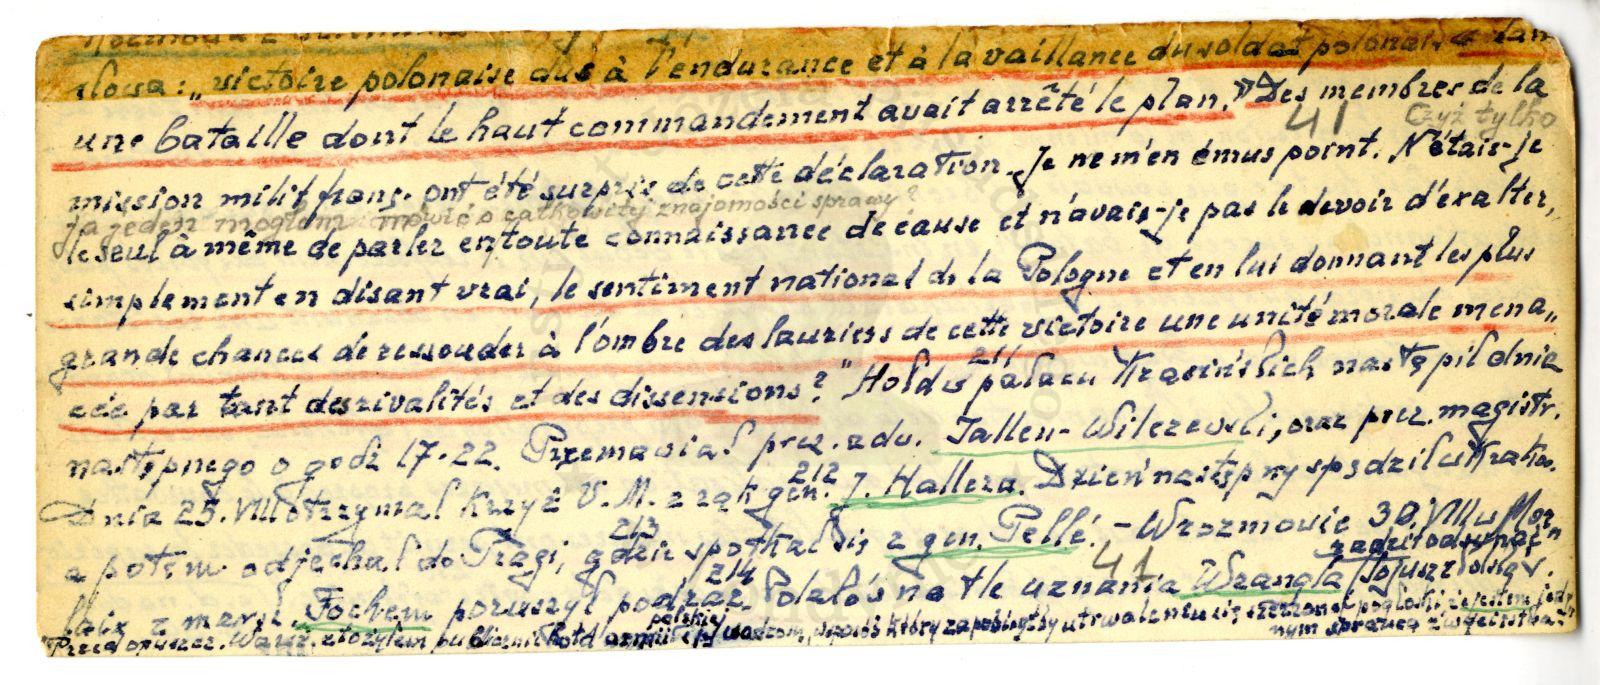 słowa: „victoire polonaise dûe à l'endurance et à la vaillance du soldat polonais, dans
une bataille dont le haut commandement avait arrêté le plan." Des membres de la
41 Czyż tylko
mission milit. franç. ont été surpris de cette déclaration. Je ne m'en émus point. N'étais-je
ja jeden mogłem mówić o całkowitej znajomości sprawy?
le seul à même de parler en toute connaissance de cause et n'avais-je pas le devoir d'exalter,
simplement en disant vrai, le sentiment national de la Pologne et en lui donnant les plus
grande chances de ressouder à l'ombre des lauriers de cette victoire une unité morale mena„
cée par tant des rivalités et des dissensions?" Hołd w pałacu Krasińskich nastąpił dnia
211
następnego o godz 17-22. Przemawiał prez. zdw. Jallen-Wilczewski, oraz prez. magistr.
212
Dnia 25. VIII otrzymał Krzyż V. M. z rąk gen. J. Hallera. Dzień następny spędził w Krako.
213
a potem odjechał do Pragi, gdzie spotkał się z gen. Pellé. - W rozmowie 30. VIII w Mor
214 41
laix z marsz. Fochem poruszył podróż Polski na tle uznania Wrangla
Przed opuszcz. Warsz. złożyłem publicznie hołd armii i jej wodzom, w sposób który zapobiegłby utrwaleniu się szerzonej pogłoski, że jestem jedy
polskiej
nym sprawcą zwycięstwa.